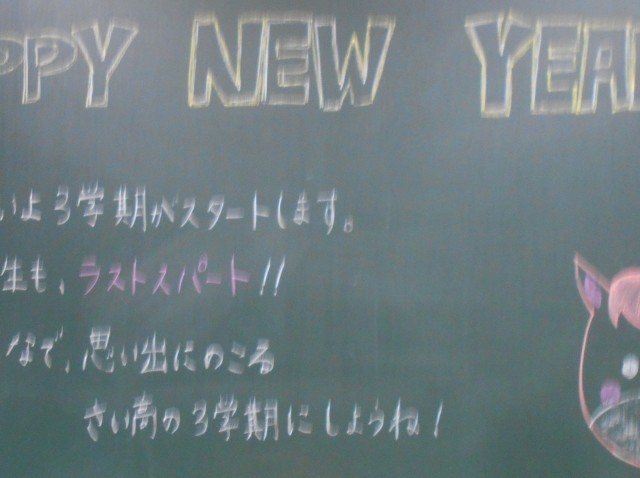 PPY NEW YEA
いよ3学期がスタートします。
生も、ラストスパート!!
なで、思い出にのこる
さい高の3学期にしようね!